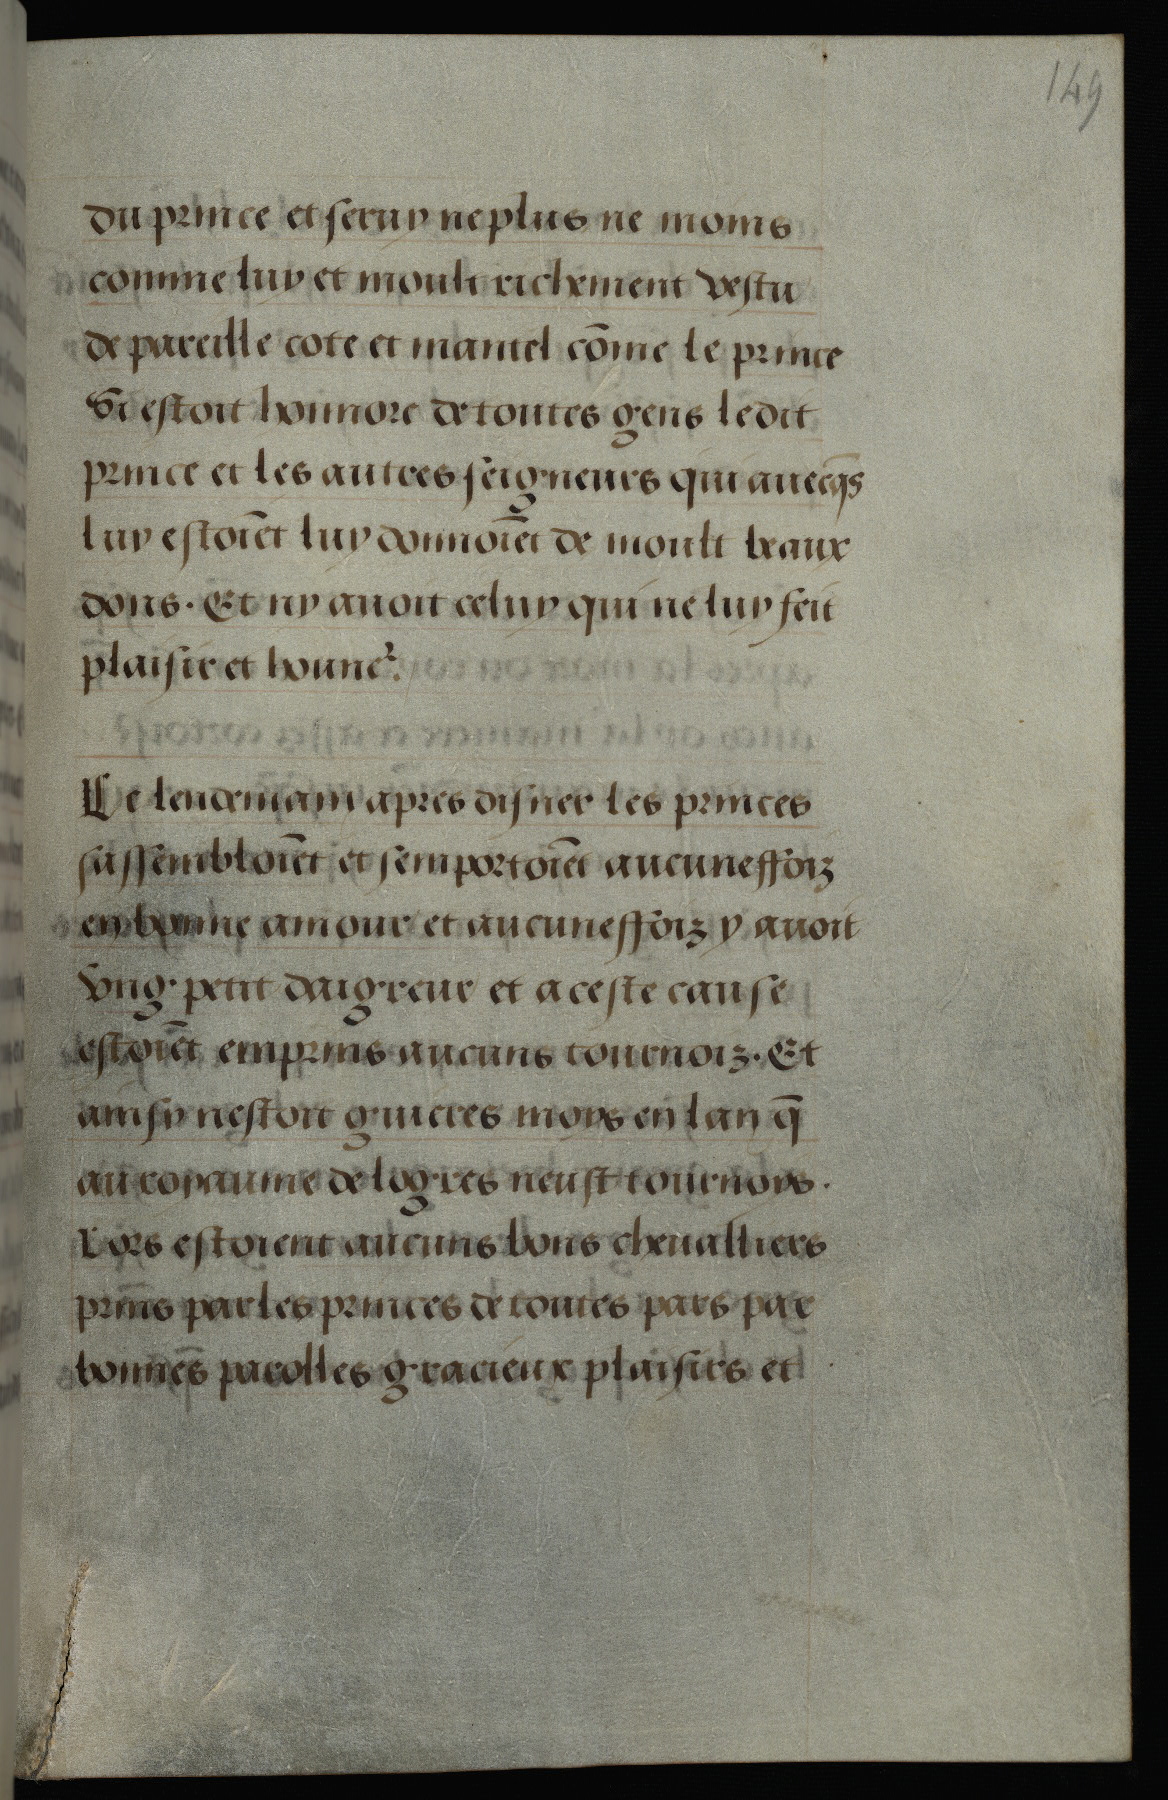 149
du prince et seruy ne plus ne moins
comme luy et moult richement vestu
de pareille cote et mantel cōme le prince
Si estoit honnore de toutes gens ledit
prince et les autres seigneurs qui auecq̄s
luy estoiēt luy donnoiēt de moult beaux
dons. Et ny auoit celuy qui ne luy feit
plaisir et honne᷑.
Le lendemain apres disner les princes
sassembloiēt et semportoiēt aucuneffoiz
en bonne amour et aucuneffoiz y auoit
vng petit daigreur et a ceste cause
estoiēt emprins aucuns tournoiz. Et
ainsy nestoit guieres moys en lan q̄
au royaume de logres neust tournoys.
Lors estoient aucuns bons cheualliers
prins par les princes de toutes pars par
bonnes parolles gracieux plaisirs et